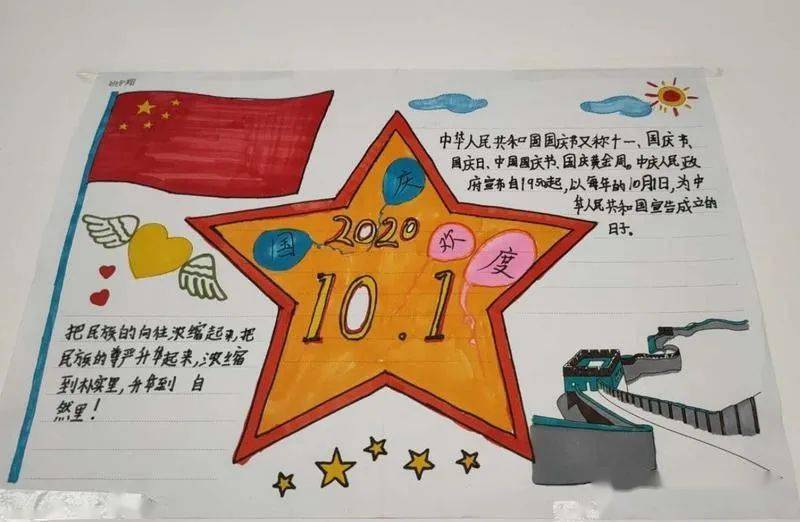 中华人民共和国国庆节又称十一、国庆节、
国庆日、中国国庆节、国庆黄金周。中庆人民政
府宣布自1950起,以每年的10月1日,为中
华人民共和国宣告成立的
日子。
庆
2020
国
欢
度
10.1
把民族的向往浓缩起来,把
民族的尊严升华起来,浓缩
到朴实里,升华到 自
然里!